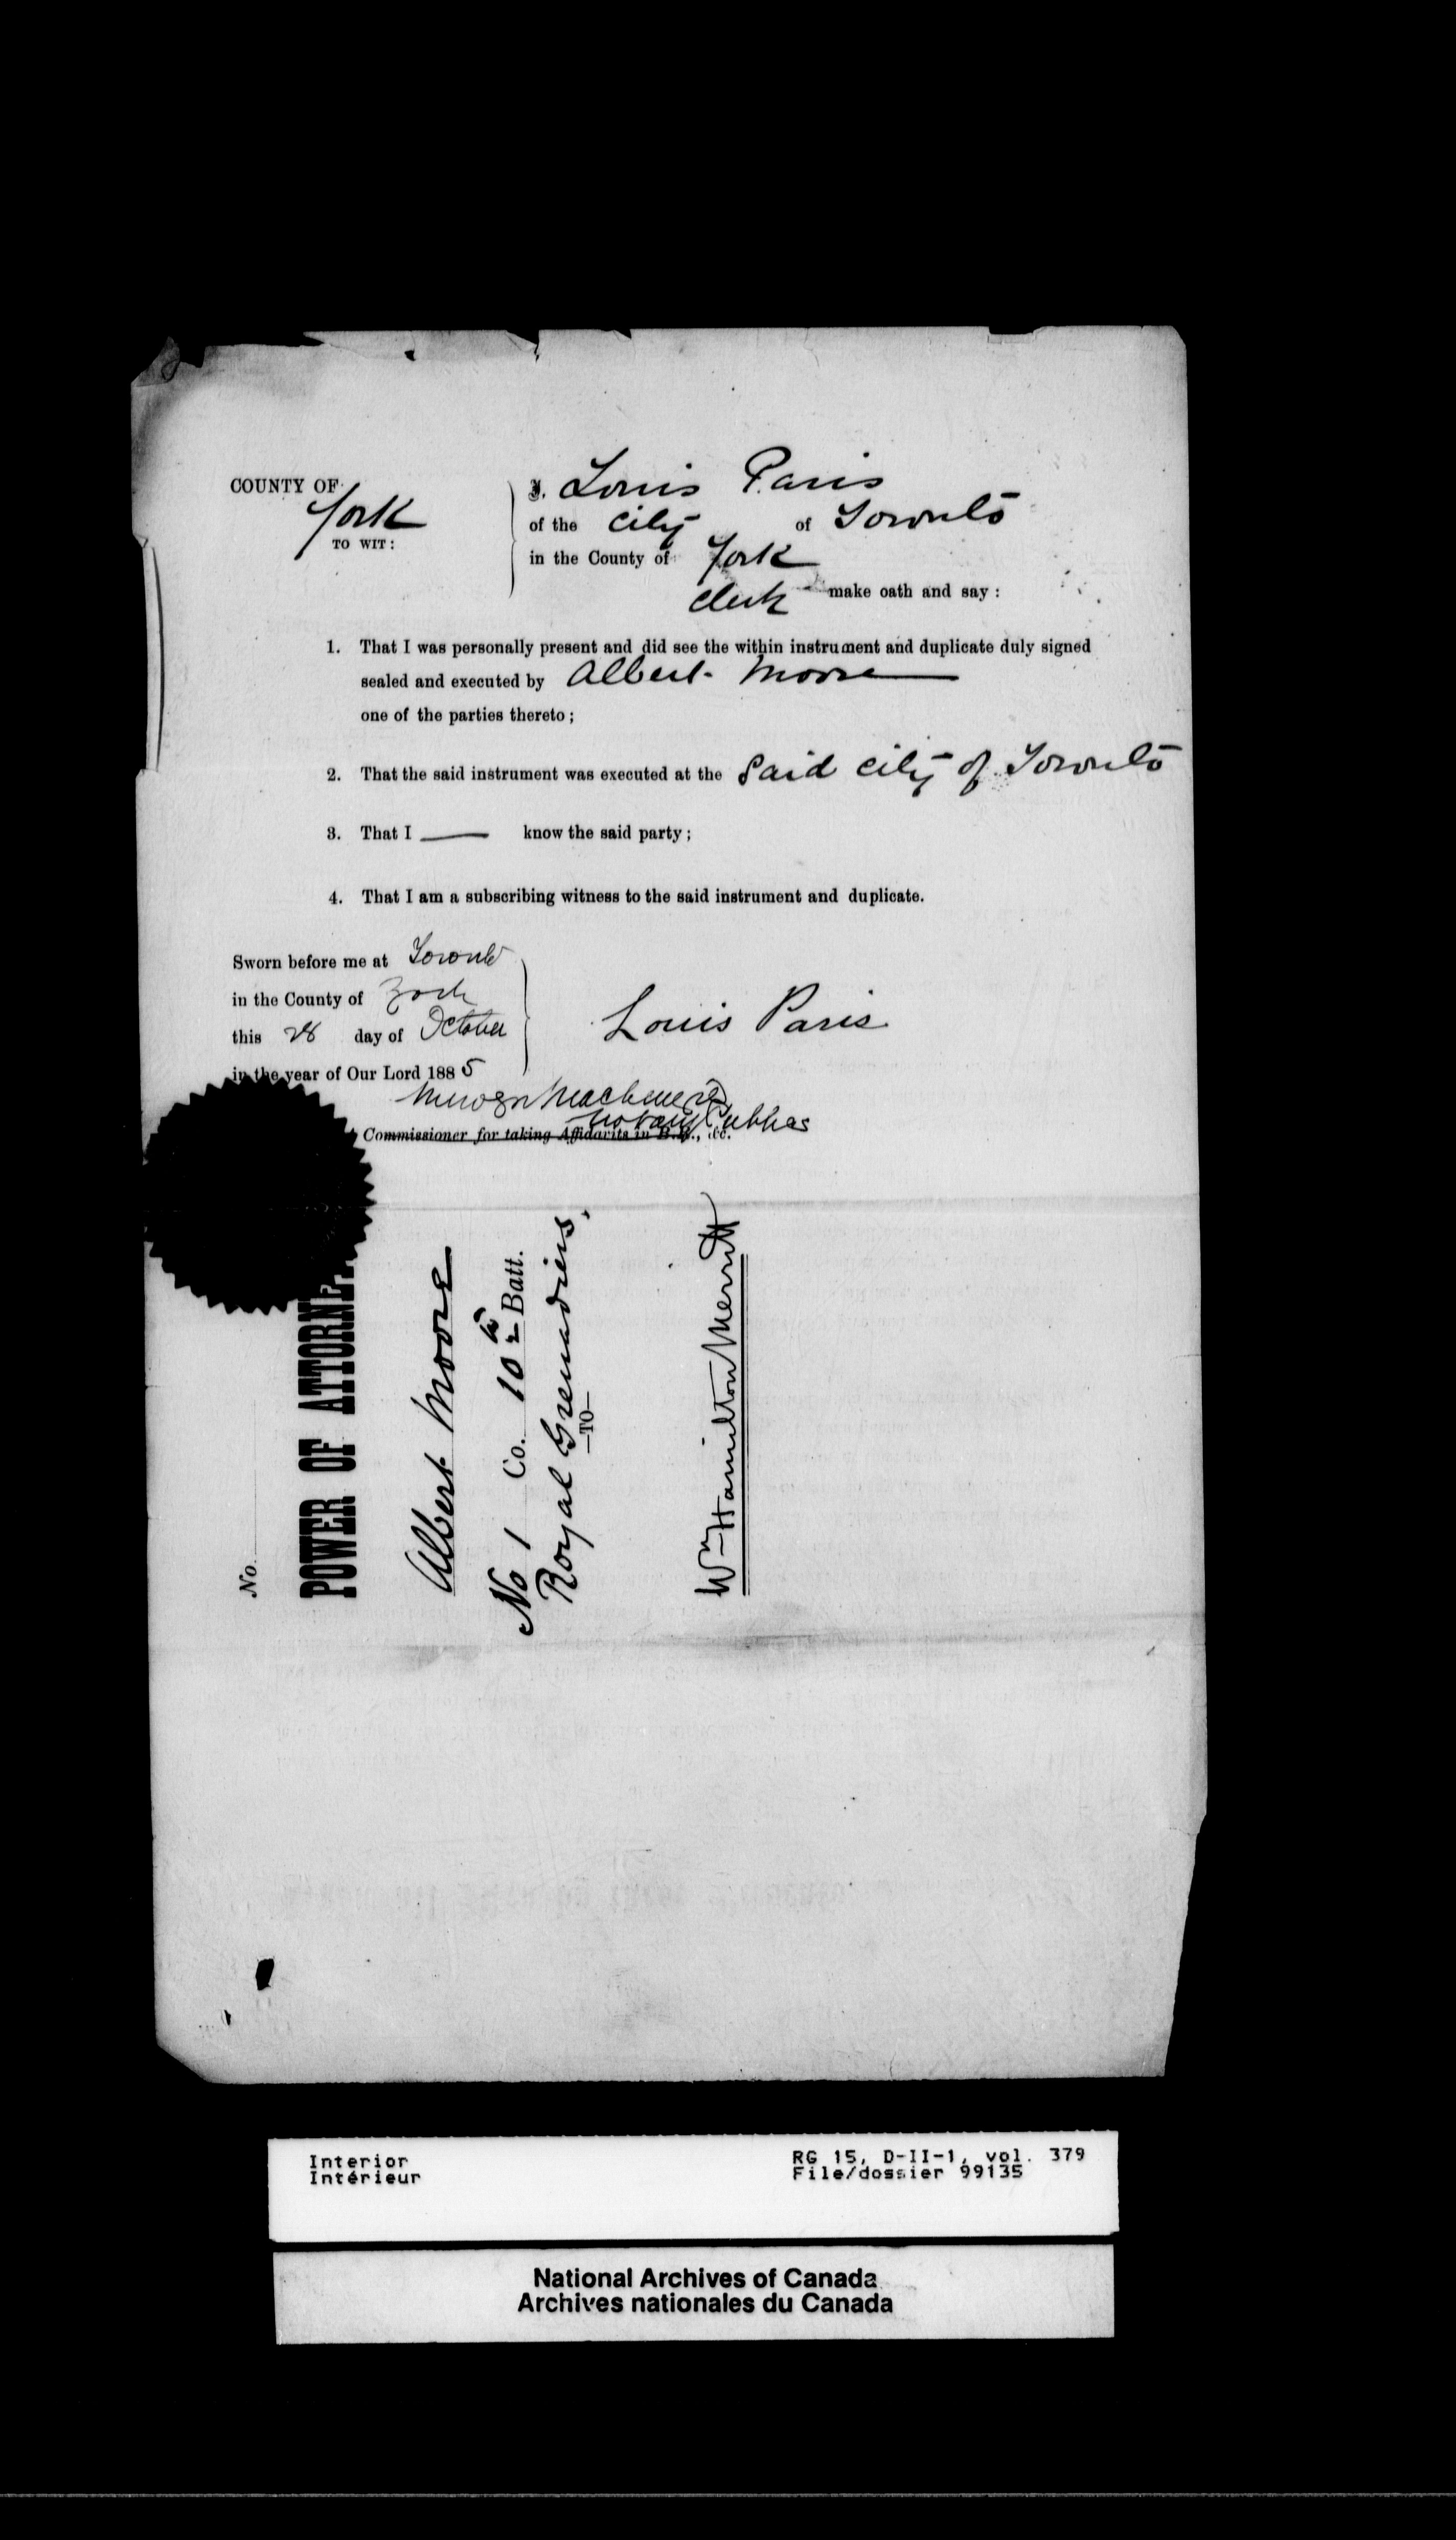 COUNTY OF
York
TO WIT:
I. Louis Paris
of the city of Toronto
in the County of York
clerk make oath and say:
1. That I was personally present and did see the within instrument and duplicate duly signed
sealed and executed by Albert Moore
one of the parties thereto;
2. That the said instrument was executed at the said city of Toronto
3. That I know the said party;
4. That I am a subscribing witness to the said instrument and duplicate.
Sworn before me at Toronto
in the County of York
this 28 day of October
in the year of Our Lord 1885
Louis Paris
Notary Public
Commissioner for taking Affidavits in B.R., &c.
No.
POWER OF ATTORNEY
Albert Moore
No 1 Co. 10th Batt.
Royal Grenadiers.
—TO—
Wm Hamilton Merritt
Interior
Intérieur
RG 15, D-II-1, vol. 379
File/dossier 99135
National Archives of Canada
Archives nationales du Canada